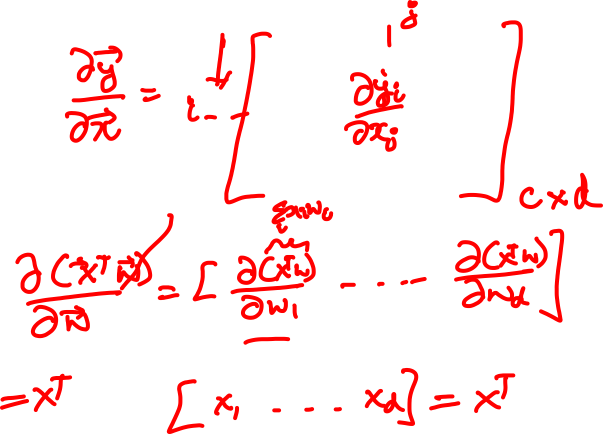 ∂y⃗/∂x⃗ = i [ ∂yᵢ/∂xⱼ ] j c×d
Σᵢ xᵢwᵢ
∂(x⃗ᵀw⃗)/∂w⃗ = [ ∂(xᵀw)/∂w₁ ---- ∂(xᵀw)/∂w_d ]
= xᵀ [ x₁ ---- x_d ] = xᵀ